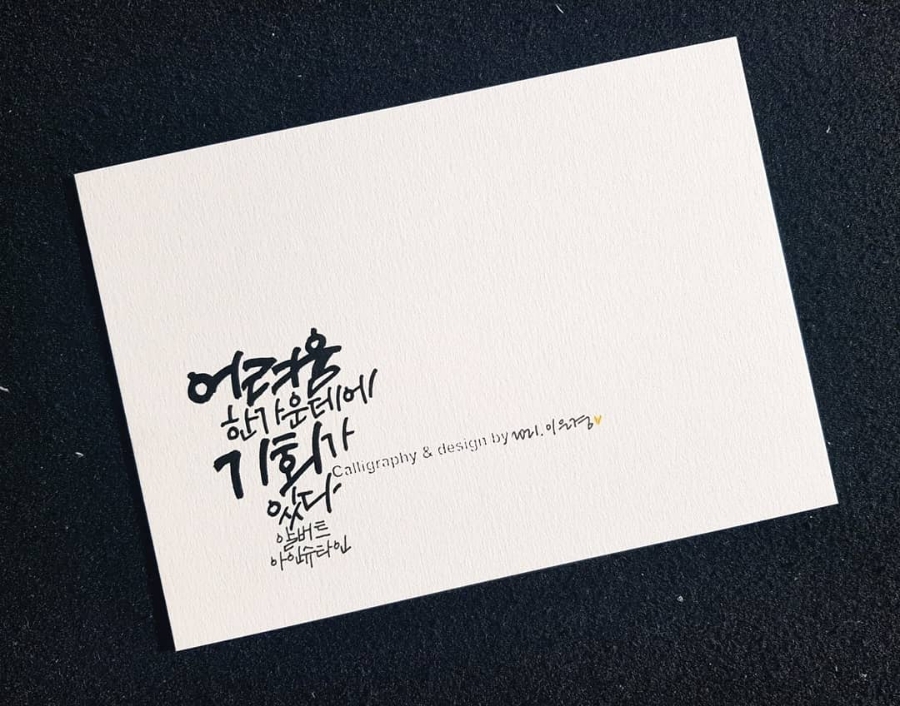 어려움
한가운데에
기회가
있다
알버트
아인슈타인
Calligraphy & design by